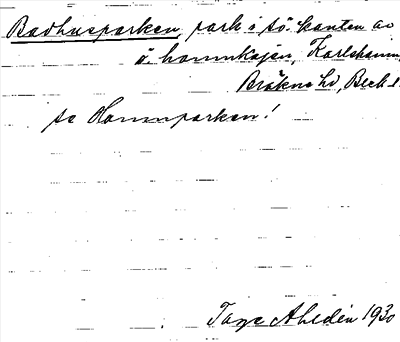 Badhusparken, park i sö. kanten av
ö. hamnkajen, Karlshamn,
Bräkne hd, Blek. l.
se Hamnparken!
Tage Ahldén 1930